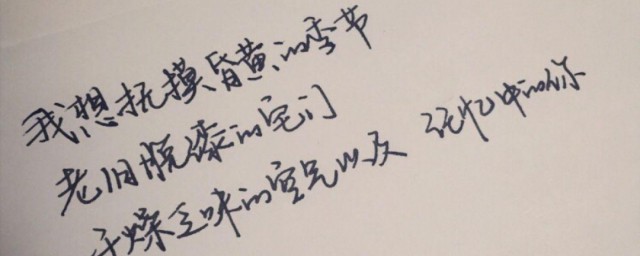 我想抚摸昏黄的季节
老旧脱漆的宅门
干燥乏味的空气以及 记忆中的你